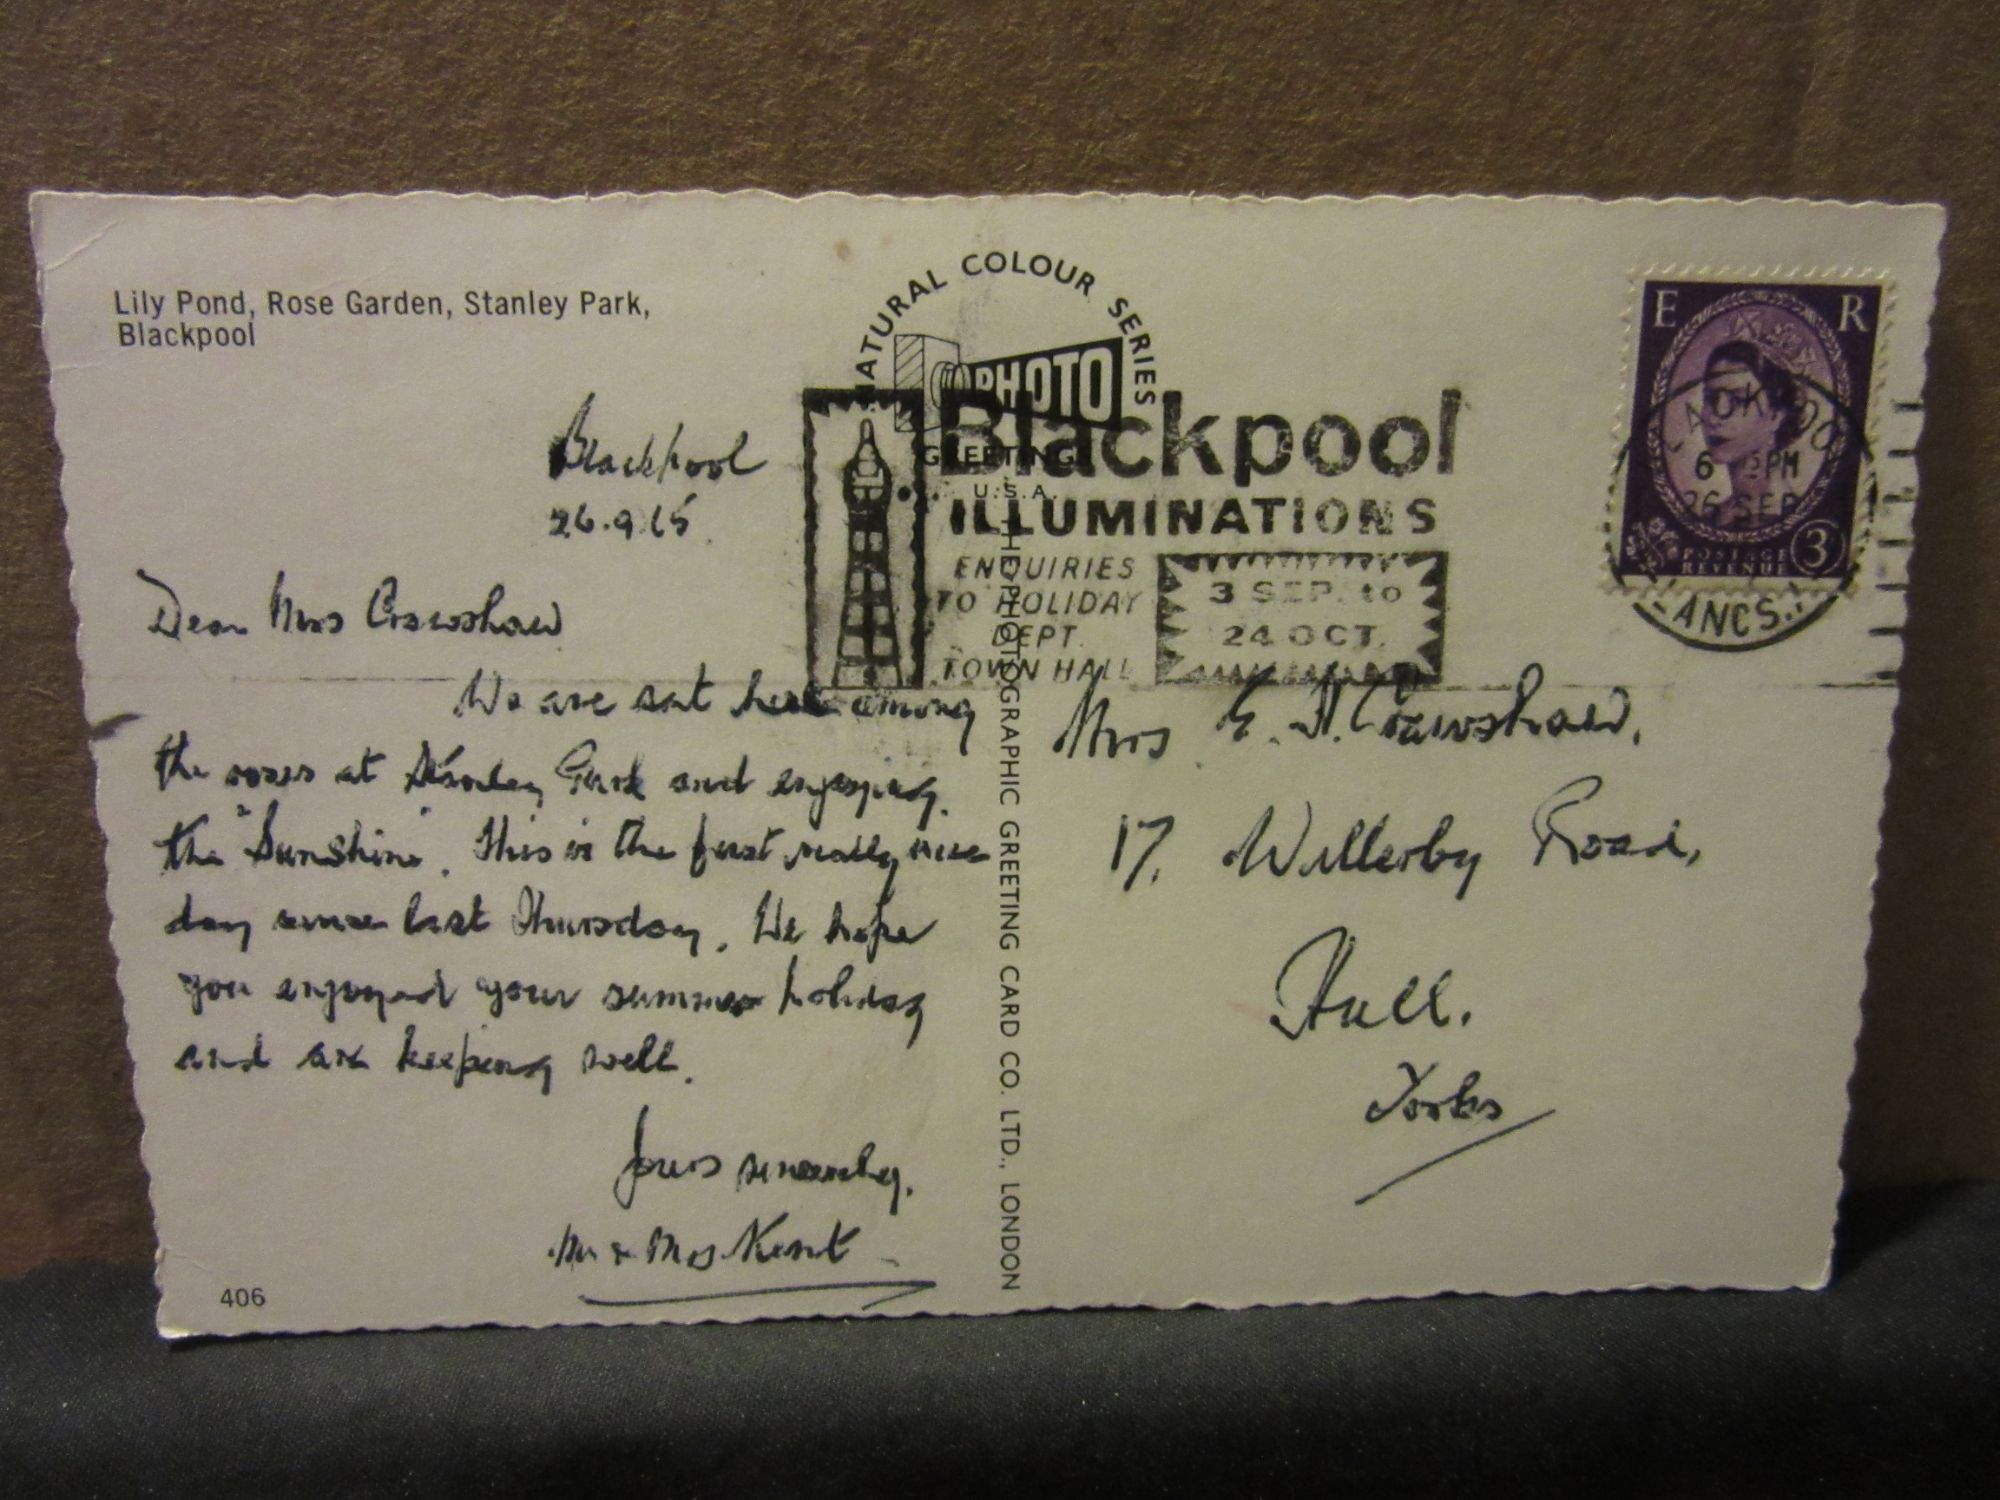 Lily Pond, Rose Garden, Stanley Park,
Blackpool
Blackpool
26.9.65.
Dear Mrs Crawshaw
We are sat here among
the roses at Stanley Park and enjoying
the "Sunshine". This is the first really nice
day since last Thursday. We hope
you enjoyed your summer holiday
and are keeping well.
Yours sincerely,
Mr & Mrs Kent
406
NATURAL COLOUR SERIES
PHOTO
GREETING
U.S.A.
THE PHOTOGRAPHIC GREETING CARD CO. LTD., LONDON
Blackpool
ILLUMINATIONS
ENQUIRIES
TO HOLIDAY
DEPT.
TOWN HALL
3 SEP. to
24 OCT.
E R
POSTAGE
REVENUE
3D
6 PM
26 SEP
LANCS.
Mrs E. H. Crawshaw,
17, Willerby Road,
Hull.
Yorks